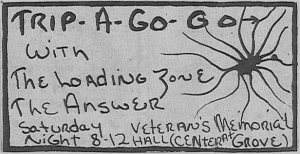 TRIP-A-GO-GO
WITH
THE LOADING ZONE
THE ANSWER
SATURDAY VETERAN'S MEMORIAL
NIGHT 8-12 HALL (CENTER AT GROVE)